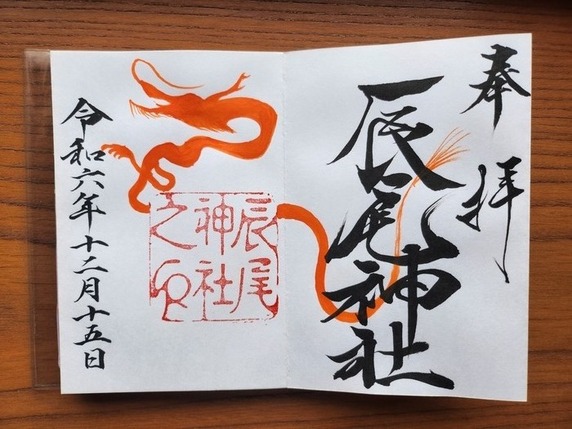 奉拝
辰尾神社
辰尾
神社
之印
令和六年十二月十五日